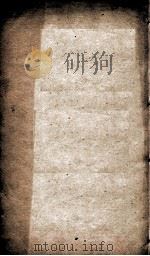 研狗
mtoou.info